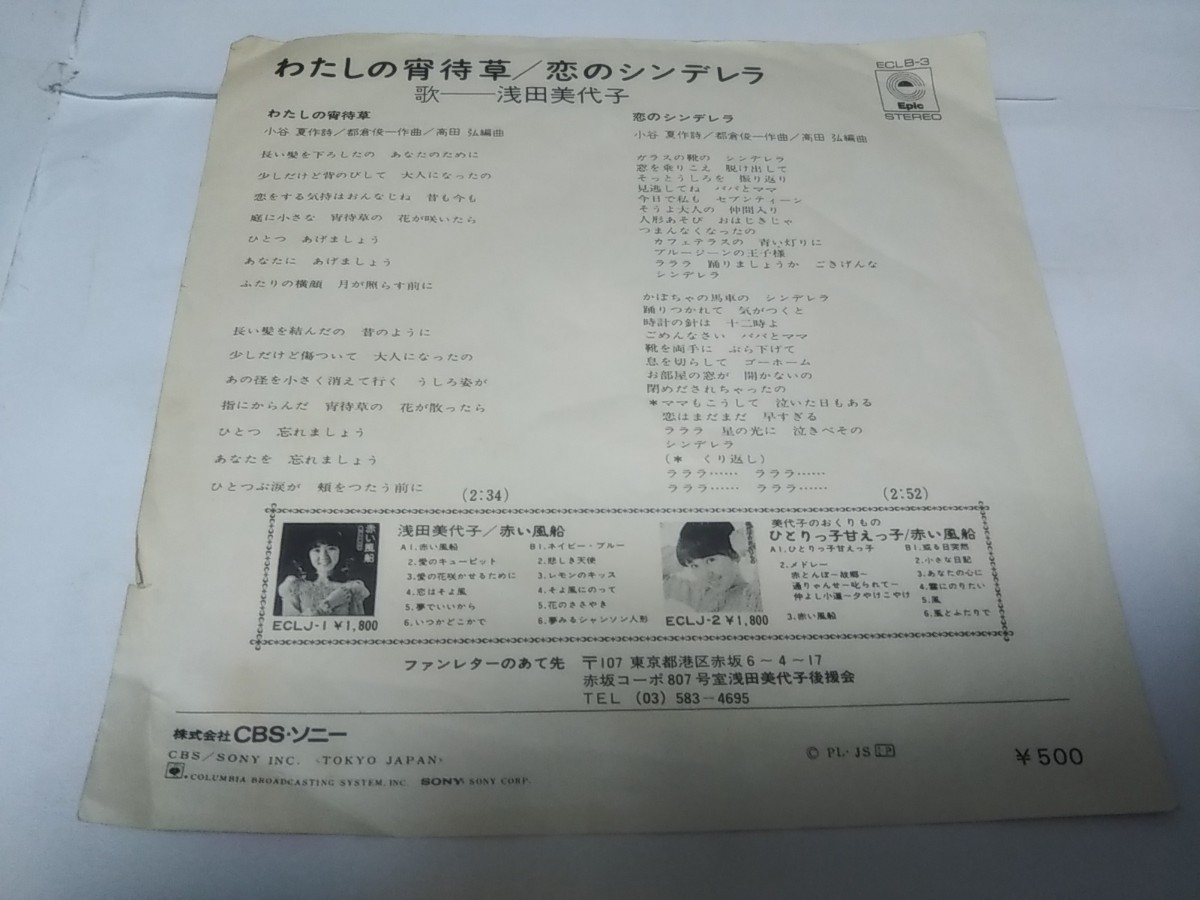 わたしの宵待草／恋のシンデレラ
歌――浅田美代子
ECLB-3
Epic
STEREO
わたしの宵待草
小谷 夏作詩／都倉俊一作曲／高田 弘編曲
長い髪を下ろしたの あなたのために
少しだけど背のびして 大人になったの
恋をする気持はおんなじね 昔も今も
庭に小さな 宵待草の 花が咲いたら
ひとつ あげましょう
あなたに あげましょう
ふたりの横顔 月が照らす前に
長い髪を結んだの 昔のように
少しだけど傷ついて 大人になったの
あの径を小さく消えて行く うしろ姿が
指にからんだ 宵待草の 花が散ったら
ひとつ 忘れましょう
あなたを 忘れましょう
ひとつぶ涙が 頬をつたう前に
(2:34)
恋のシンデレラ
小谷 夏作詩／都倉俊一作曲／高田 弘編曲
ガラスの靴の シンデレラ
窓を乗りこえ 脱け出して
そっとうしろを 振り返り
見逃してね パパとママ
今日で私も セブンティーン
そうよ大人の 仲間入り
人形あそび おはじきじゃ
つまんなくなったの
カフェテラスの 青い灯りに
ブルージーンの王子様
ラララ 踊りましょうか ごきげんな
シンデレラ
かぼちゃの馬車の シンデレラ
踊りつかれて 気がつくと
時計の針は 十二時よ
ごめんなさい パパとママ
靴を両手に ぶら下げて
息を切らして ゴーホーム
お部屋の窓が 開かないの
閉めだされちゃったの
*ママもこうして 泣いた日もある
恋はまだまだ 早すぎる
ラララ 星の光に 泣きべその
シンデレラ
(* くり返し)
ラララ…… ラララ……
ラララ…… ラララ……
(2:52)
赤い風船
ECLJ-1 ¥1,800
浅田美代子／赤い風船
A1.赤い風船
2.愛のキューピット
3.愛の花咲かせるために
4.恋はそよ風
5.夢でいいから
6.いつかどこかで
B1.ネイビー・ブルー
2.悲しき天使
3.レモンのキッス
4.そよ風にのって
5.花のささやき
6.夢みるシャンソン人形
ECLJ-2 ¥1,800
美代子のおくりもの
ひとりっ子甘えっ子/赤い風船
A1.ひとりっ子甘えっ子
2.メドレー
赤とんぼ～故郷～
通りゃんせ～叱られて～
仲よし小道～夕やけこやけ
3.赤い風船
B1.或る日突然
2.小さな日記
3.あなたの心に
4.雲にのりたい
5.風
6.風とふたりで
ファンレターのあて先 〒107 東京都港区赤坂6～4～17
赤坂コーポ807号室浅田美代子後援会
TEL (03) 583－4695
株式会社CBS・ソニー
CBS／SONY INC. 〈TOKYO JAPAN〉
COLUMBIA BROADCASTING SYSTEM, INC. SONY: SONY CORP.
© PL・JS LP
¥500